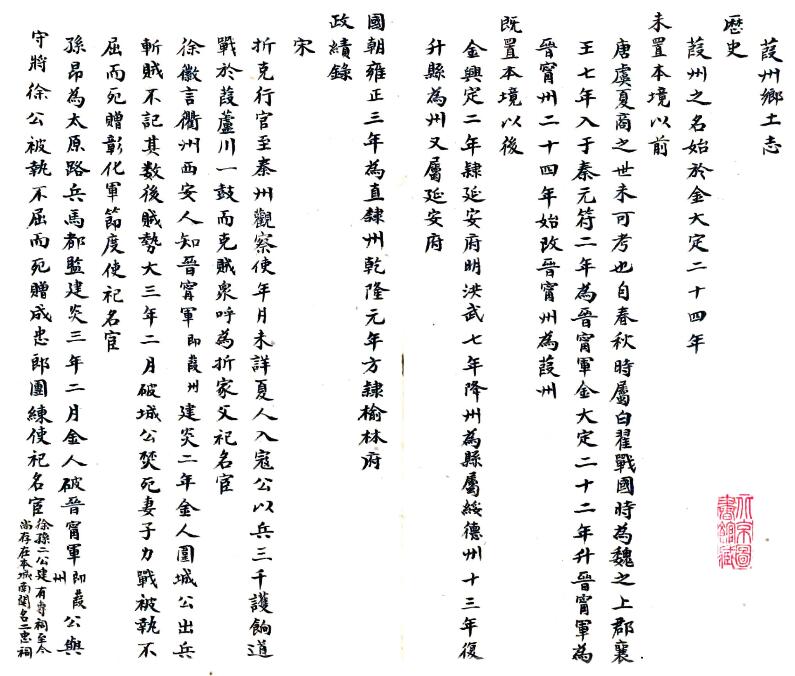 葭州鄉土志
歷史
葭州之名始於金大定二十四年
未置本境以前
唐虞夏商之世未可考也自春秋時屬白翟戰國時為魏之上郡襄
王七年入于秦元符二年為晉甯軍金大定二十二年升晉甯軍為
晉甯州二十四年始改晉甯州為葭州
既置本境以後
金興定二年隸延安府明洪武七年降州為縣屬綏德州十三年復
升縣為州又屬延安府
國朝雍正三年為直隸州乾隆元年方隸榆林府
政績錄
宋
折克行官至秦州觀察使年月未詳夏人入寇公以兵三千護餉道
戰於葭蘆川一鼓而克賊衆呼為折家父祀名宦
徐徽言衢州西安人知晉甯軍即葭州建炎二年金人圍城公出兵
斬賊不記其數後賊勢大三年二月破城公焚死妻子力戰被執不
屈而死贈彰化軍節度使祀名宦
孫昂為太原路兵馬都監建炎三年二月金人破晉甯軍即葭州公與
守將徐公被執不屈而死贈成忠郎團練使祀名宦徐孫二公建有專祠至今尚存在本城南關名二忠祠
北京圖書館藏